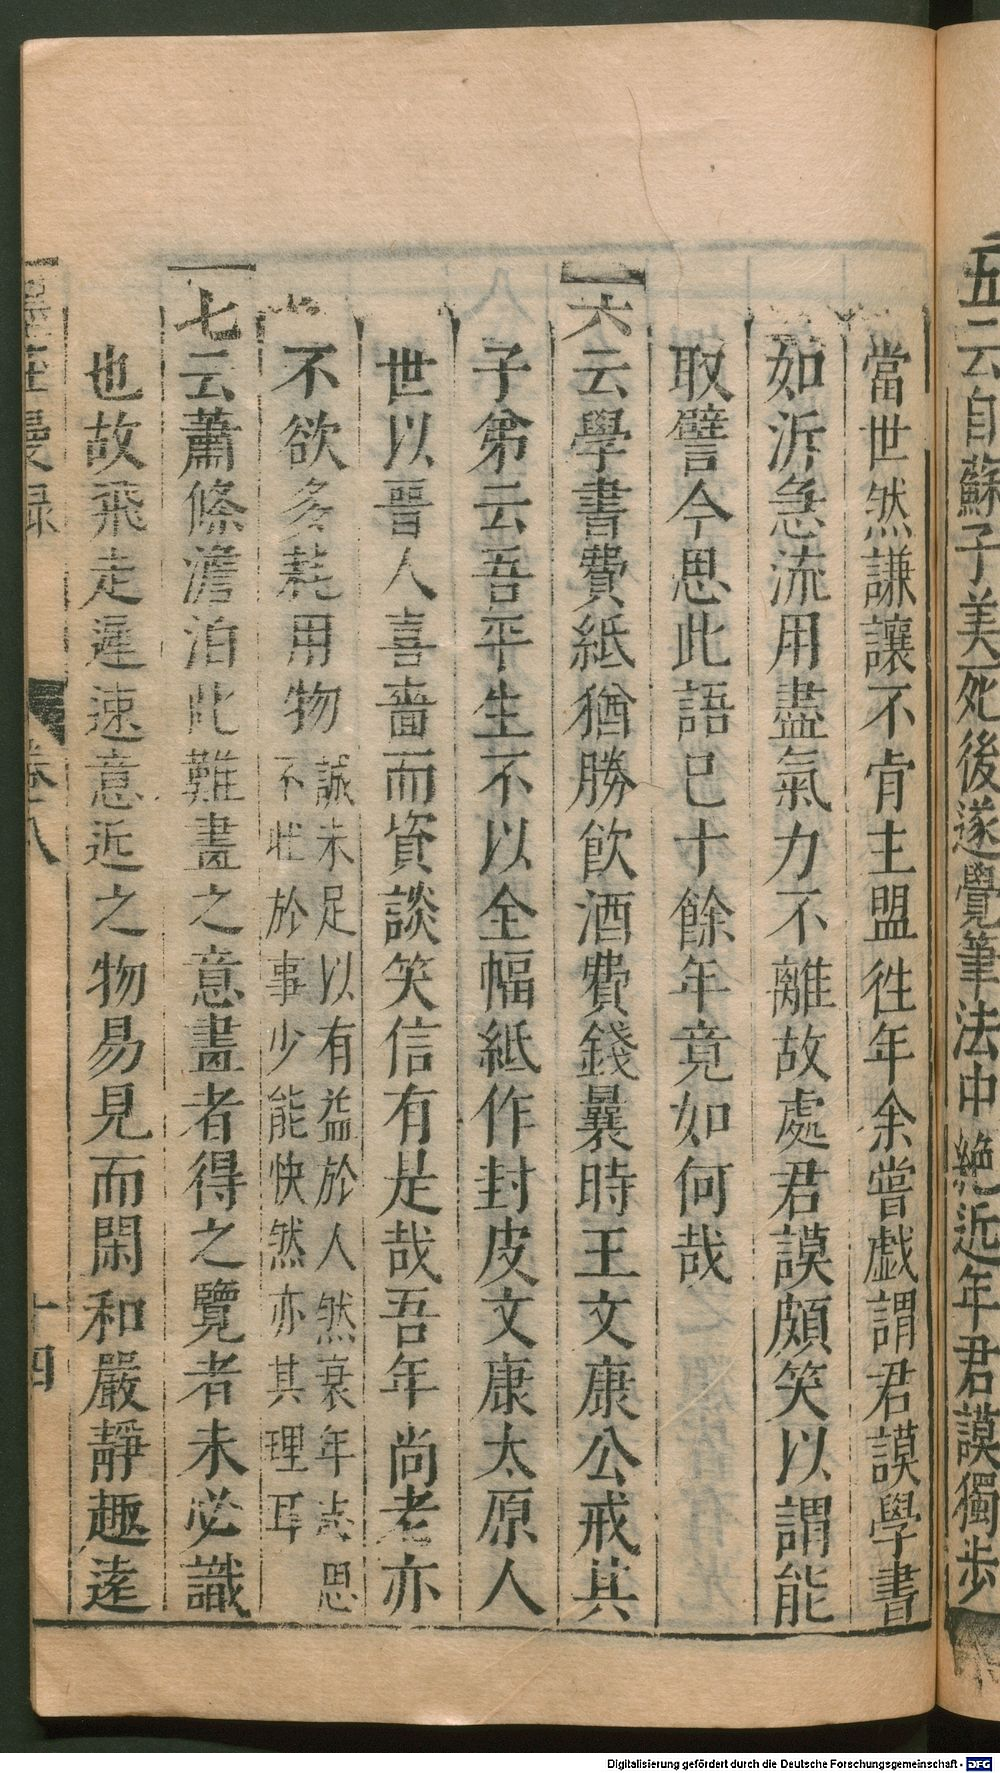 五云自蘇子美死後遂覺筆法中絶近年君謨獨步
當世然謙讓不肯主盟徃年余嘗戯謂君謨學書
如泝急流用盡氣力不離故處君謨頗笑以謂能
取譬今思此語已十餘年竟如何哉
六云學書費紙猶勝飲酒費錢曩時王文康公戒其
子弟云吾平生不以全幅紙作封皮文康太原人
世以晉人喜嗇而資談笑信有是哉吾年尚老亦
不欲多耗用物
誠未足以有益於人然衰年志思
不壯於事少能快然亦其理耳
七云蕭條澹泊此難畫之意畫者得之覽者未必識
也故飛走遲速意近之物易見而閑和嚴靜趣遠
墨莊漫録 卷八 十四
Digitalisierung gefördert durch die Deutsche Forschungsgemeinschaft - DFG